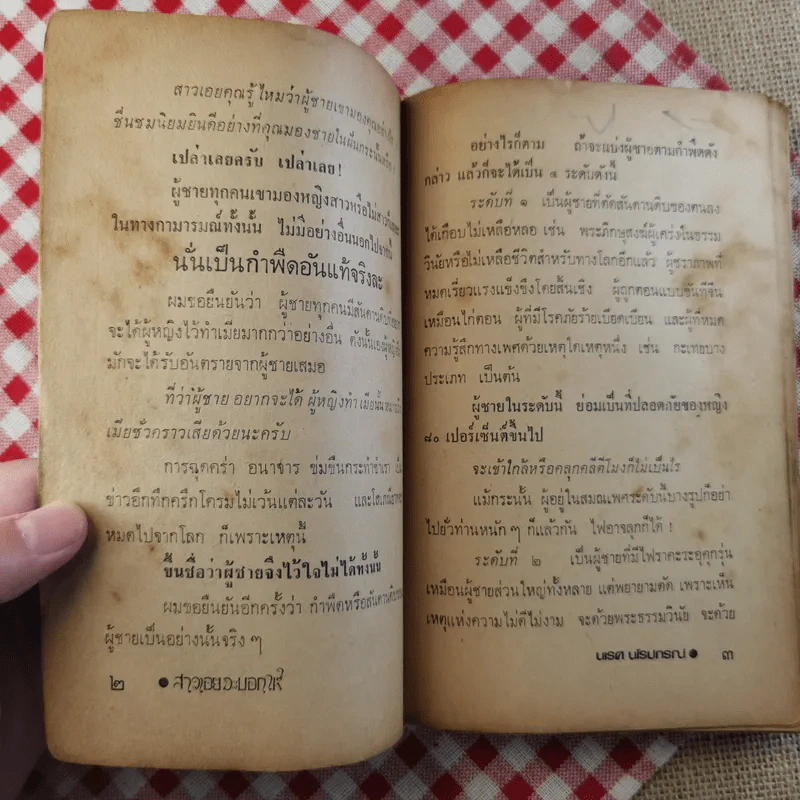 สาวเอยคุณรู้ไหมว่าผู้ชายเขามองคุณอย่าง
ชื่นชมนิยมยินดีอย่างที่คุณมองชายในฝันกระนั้นหรือ?
เปล่าเลยครับ เปล่าเลย!
ผู้ชายทุกคนเขามองหญิงสาวหรือไม่สาวก็
ในทางกามารมณ์ทั้งนั้น ไม่มีอย่างอื่นนอกไปจากนี้
นั่นเป็นกำพืดอันแท้จริงละ
ผมขอยืนยันว่า ผู้ชายทุกคนมีสันดานดิบที่
จะได้ผู้หญิงไว้ทำเมียมากกว่าอย่างอื่น ดังนั้นเองผู้หญิง
มักจะได้รับอันตรายจากผู้ชายเสมอ
ที่ว่าผู้ชาย อยากจะได้ ผู้หญิงทำ เมียนั้น
เมียชั่วคราวเสียด้วยนะครับ
การฉุดคร่า อนาจาร ข่มขืนกระทำชำเรา
ข่าวอึกทึกครึกโครมไม่เว้นแต่ละวัน และโสเภณี
หมดไปจากโลก ก็เพราะเหตุนี้
ขึ้นชื่อว่าผู้ชายจึงไว้ใจไม่ได้ทั้งนั้น
ผมขอยืนยันอีกครั้งว่า กำพืดหรือสันดานดิบ
ผู้ชายเป็นอย่างนั้นจริง ๆ
๒ ● สาวเอยจะบอกให้
อย่างไรก็ตาม ถ้าจะแบ่งผู้ชายตามกำพืดดัง
กล่าว แล้วก็จะได้เป็น ๔ ระดับดังนี้
ระดับที่ ๑ เป็นผู้ชายที่ตัดสันดานดิบของตนลง
ได้เกือบไม่เหลือหลอ เช่น พระภิกษุสงฆ์ผู้เคร่งในธรรม
วินัยหรือไม่เหลือชีวิตสำหรับทางโลกอีกแล้ว ผู้ชราภาพที่
หมดเรี่ยวแรงแข็งขึงโดยสิ้นเชิง ผู้ถูกตอนแบบขันทีจีน
เหมือนไก่ตอน ผู้ที่มีโรคภัยร้ายเบียดเบียน และผู้ที่หมด
ความรู้สึกทางเพศด้วยเหตุใดเหตุหนึ่ง เช่น กะเทยบาง
ประเภท เป็นต้น
ผู้ชายในระดับนี้ ย่อมเป็นที่ปลอดภัยของหญิง
๘๐ เปอร์เซ็นต์ขึ้นไป
จะเข้าใกล้หรือคลุกคลีตีโมงก็ไม่เป็นไร
แม้กระนั้น ผู้อยู่ในสมณเพศระดับนี้บางรูปก็อย่า
ไปยั่วท่านหนัก ๆ ก็แล้วกัน ไฟอาจลุกก็ได้!
ระดับที่ ๒ เป็นผู้ชายที่มีไฟราคะระอุคุกรุ่น
เหมือนผู้ชายส่วนใหญ่ทั้งหลาย แต่พยายามตัด เพราะเห็น
เหตุแห่งความไม่ดีไม่งาม จะด้วยพระธรรมวินัย จะด้วย
นเรศ นโรปกรณ์ ● ๓